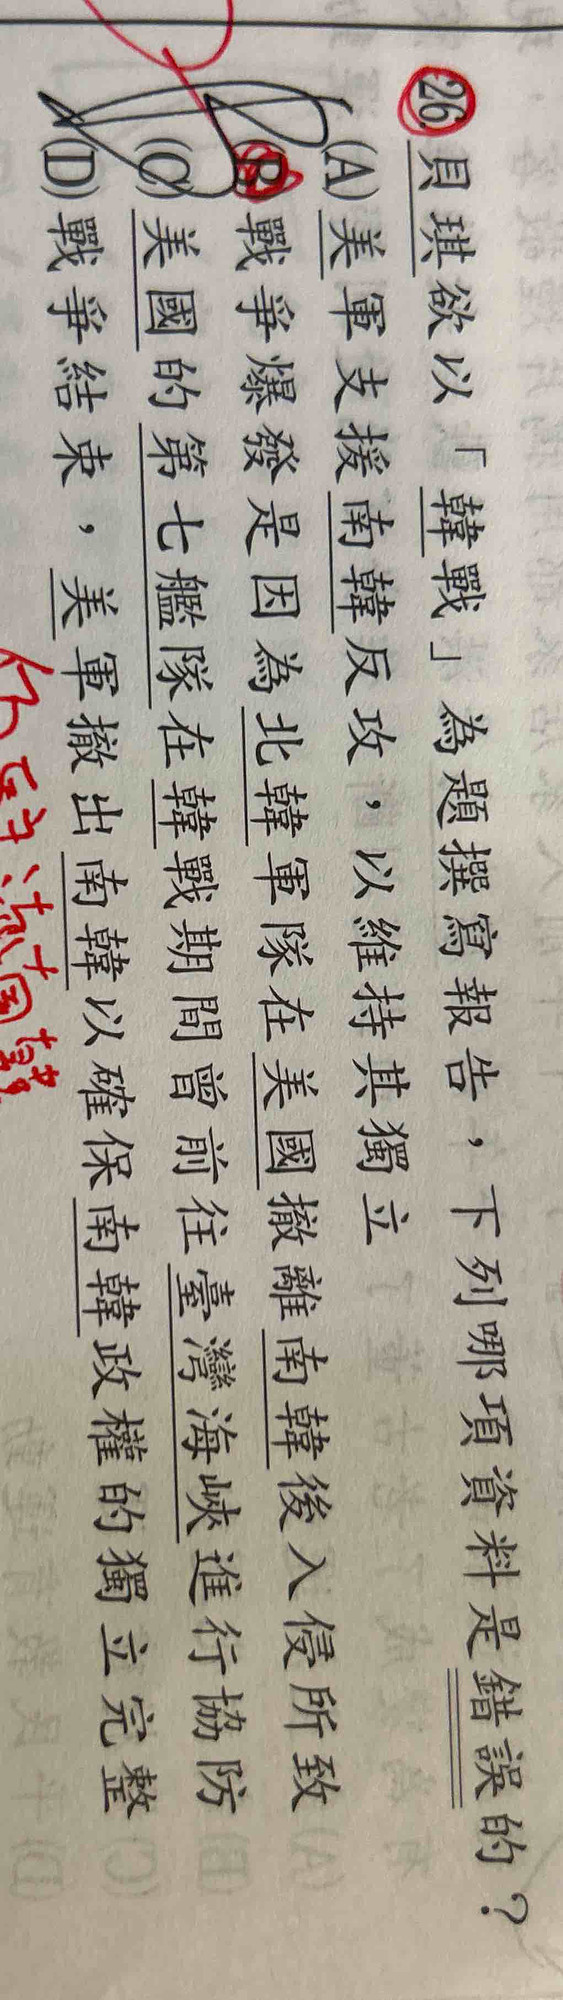 26. 貝琪欲以「韓戰」為題撰寫報告，下列哪項資料是錯誤的？
(A)美軍支援南韓反攻，以維持其獨立
(B)戰爭爆發是因為北韓軍隊在美國撤離南韓後入侵所致
(C)美國的第七艦隊在韓戰期間曾前往臺灣海峽進行協防
(D)戰爭結束，美軍撤出南韓以確保南韓政權的獨立完整